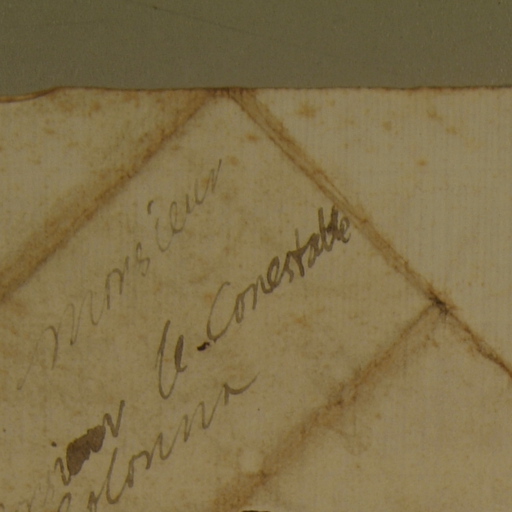 Monsieur
le Conestable
Colonna